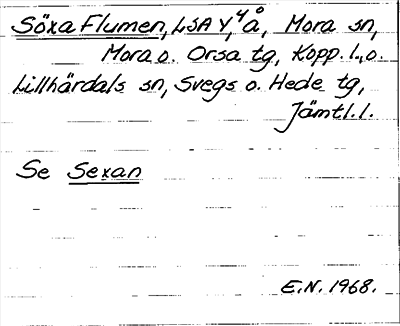 Söxa Flumen, LSA Y, 4 å, Mora sn,
Mora o. Orsa tg, Kopp. l., o.
Lillhärdals sn, Svegs o. Hede tg,
Jämtl. l.
Se Sexan
E.N. 1968.